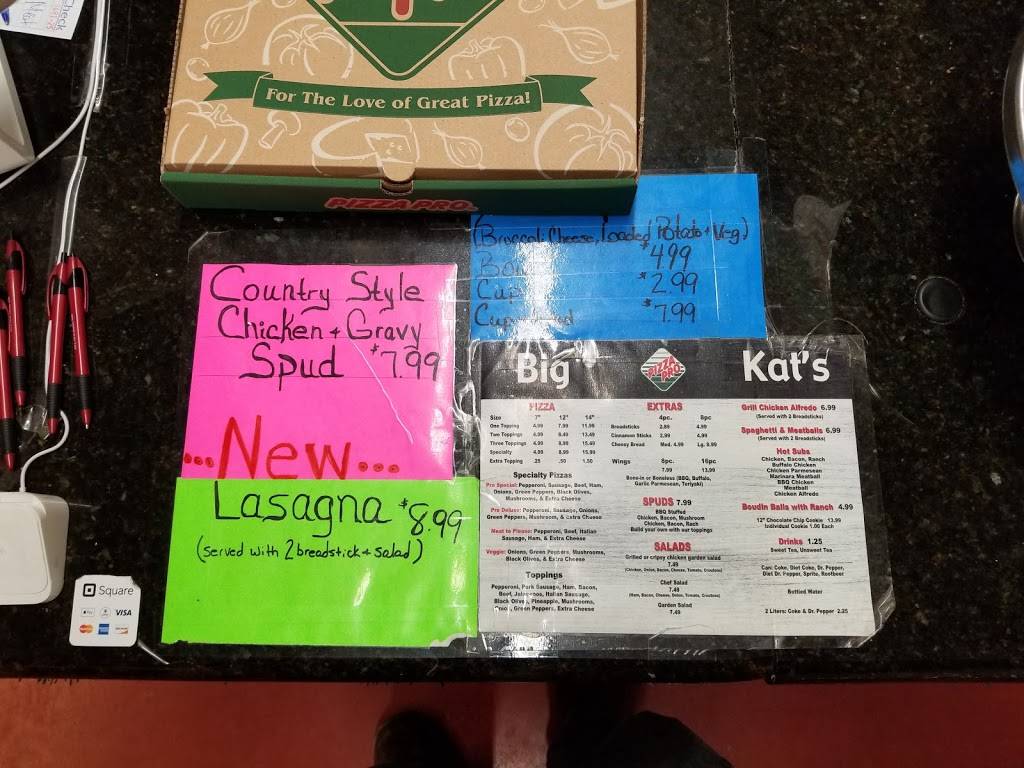 For The Love of Great Pizza!
PIZZA PRO
(Broccoli Cheese, Loaded Potato + Veg)
$4.99
Cup $2.99
$7.99
Country Style
Chicken + Gravy
Spud $7.99
...New...
Lasagna $8.99
(served with 2 breadstick + salad)
Square
VISA
Big PIZZA PRO Kat's
PIZZA
Size 7" 12" 14"
One Topping 4.99 7.99 11.99
Two Toppings 8.49 13.49
Three Toppings 8.99 15.49
Specialty 4.99 8.99 15.99
Extra Topping .25 .50 1.50
Specialty Pizzas
Pro Special: Pepperoni, Sausage, Beef, Ham,
Onions, Green Peppers, Black Olives,
Mushrooms, & Extra Cheese
Pro Deluxe: Pepperoni, Sausage, Onions,
Green Peppers, Mushrooms, & Extra Cheese
Meat to Please: Pepperoni, Beef, Italian
Sausage, Ham, & Extra Cheese
Veggie: Onions, Green Peppers, Mushrooms,
Black Olives, & Extra Cheese
Toppings
Pepperoni, Pork Sausage, Ham, Bacon,
Beef, Jalapenos, Italian Sausage,
Black Olives, Pineapple, Mushrooms,
Onion, Green Peppers, Extra Cheese
EXTRAS
4pc. 8pc
Breadsticks 2.89 4.99
Cinnamon Sticks 2.99 4.99
Cheesy Bread Med. 4.99 Lg. 8.99
Wings 8pc. 16pc
7.99 13.99
Bone-in or Boneless (BBQ, Buffalo,
Garlic Parmesean, Teriyaki)
SPUDS 7.99
BBQ Stuffed
Chicken, Bacon, Mushroom
Chicken, Bacon, Rach
Build your own with our toppings
SALADS
Grilled or cripsy chicken garden salad
7.49
(Chicken, Onion, Bacon, Cheese, Tomato, Croutons)
Chef Salad
7.49
(Ham, Bacon, Cheese, Onion, Tomato, Croutons)
Garden Salad
7.49
Grill Chicken Alfredo 6.99
(Served with 2 Breadsticks)
Spaghetti & Meatballs 6.99
(Served with 2 Breadsticks)
Hot Subs
Chicken, Bacon, Ranch
Buffalo Chicken
Chicken Parmesean
Marinara Meatball
BBQ Chicken
Meatball
Chicken Alfredo
Boudin Balls with Ranch 4.99
12" Chocolate Chip Cookie 13.99
Individual Cookie 1.00 Each
Drinks 1.25
Sweet Tea, Unsweet Tea
Can: Coke, Diet Coke, Dr. Pepper,
Diet Dr. Pepper, Sprite, Rootbeer
Bottled Water
2 Liters: Coke & Dr. Pepper 2.25